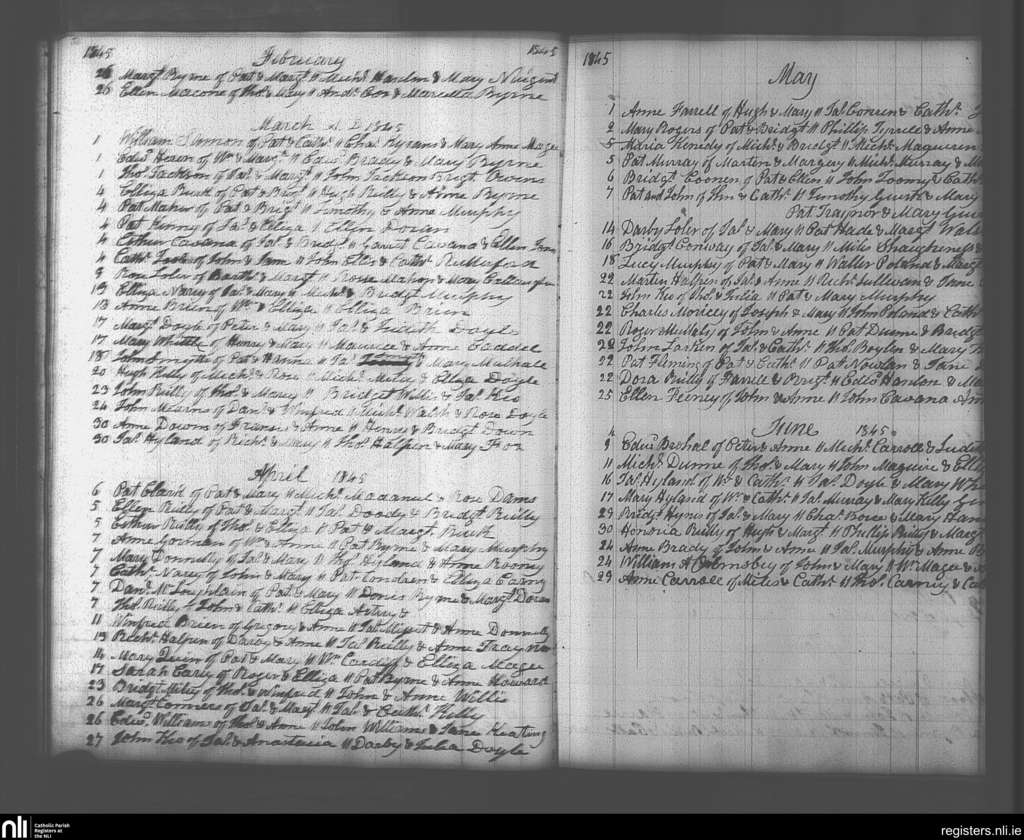 1845 February 1845
26 Margt Byrne of Pat & Margt // Michl Hanlon & Mary Nuigent
26 Ellen Macone of Thos & Mary // Andw Cox & Marcella Byrne
March A D 1845
1 William of Pat & Cathe // Chas Byrans & Mary Anne Magee
1 Edwd of Wm & Margt // Edwd Brady & Mary Byrne
1 Thos Jackson of Jas & Margt // John Jackson Brigt Owens
4 Elliza Burk of Pat & Brigt // Hugh Reilly & Anne Byrne
4 Pat Maher of Pat & Brigt // Timothy & Anne Murphy
4 Pat Kinny of Jas & Eliza // Ellen Doran
4 Esther Cavana of Jas & Bridgt // Garrit Cavana & Ellen
4 Cathe of John & Jane // John Ellis & Cathe
9 Rose Loler of Barthw & Margt // Rose Mahon & Mary
13 Elliza Narey of Jas & Mary // Michl & Bridgt Murphy
13 Anne Brien of Wm & Elliza // Elliza Brien
17 Margt Doyle of Peter & Mary // Jas & Judith Doyle
17 Mary Whittle of Henry & Mary // Maurice & Anne Caddel
18 John Smythe of Pat & Hanna // Jas & Mary Mulhale
20 Hugh Kelly of Michl & Rose // Michl & Elliza Doyle
23 John Reilly of Thos & Mary // Bridget Willis & Jas Keo
24 John Mearns of Danl & Winfred // Michl Walsh & Rose Doyle
30 Anne Down of Fransis & Anne // Henry & Bridgt Down
30 Jas Hyland of Richd & Mary // Thos Halpin & Mary Fox
April 1845
6 Pat Clark of Pat & Mary // Michl Madaniel & Rose Dams
5 Ellen Reilly of Pat & Margt // Jas Doody & Bridgt Reilly
5 Esther Reilly of Thos & Elliza // Pat & Margt Burk
7 Anne Gorman of Wm & Anne // Pat Byrne & Mary Murphy
7 Mary Donnelly of Jas & Mary // Thos Hyland & Anne Rooney
7 Cathe Narey of John & Mary // Pat Condren & Elliza Carny
7 Danl McLoughlain of Pat & Mary // Denis Byrne & Margt Doran
7 Thos Reilly of John & Cathe // Elliza &
11 Winfred Brien of Gregory & Anne // Jas & Anne Donnelly
13 Richd Halpen of Darby & Anne // Jas Reilly & Anne Traynor
14 Mary Quin of Pat & Mary // Wm Cardiff & Elliza Magee
17 Sarah Carly of Roger & Elliza // Pat Byrne & Anne Howard
23 Bridgt Miley of Thos & Winfred // John & Anne Willis
26 Margt Conners of Jas & Mary // Jas & Cathe Kelly
26 Edwd Williams of Thos & Anne // John Williams & Jane Keating
27 John Keo of Jas & Anastatia // Darby & Julia Doyle
1845
May
1 Anne Farrell of Hugh & Mary // Jas Conren & Cathe
2 Mary Rogers of Pat & Bridgt // Phillip Tyrell & Anne
5 Maria Kenedy of Michl & Bridgt // Michl Maguiren
5 Pat Murray of Martin & Margery // Michl Murray &
6 Bridgt Coonen of Pat & Ellen // John Toomy & Cathe
7 Pat and John of Thos & Cathe // Timothy & Mary
Pat Traynor & Mary
14 Darby Loler of Jas & Mary // Pat Hade & Margt
16 Bridgt Conway of Jas & Mary // Miles Shaughness &
18 Lucy Murphy of Pat & Mary // Walter Poland & Margt
22 Martin Halpen of Jas & Anne // Richd Sullivan & Jane
22 John Keo of Thos & Julia // Pat & Mary Murphy
22 Charles of Joseph & Mary // John Poland & Cathe
22 Roger Mullaly of John & Anne // Pat Dunne & Bridgt
22 John Larken of Jas & Cathe // Thos Boylen & Mary
22 Pat Fleming of Pat & Cathe // Pat Nowlan & Jane
22 Dora Reilly of Farrell & Brigt // Edwd Hanlon &
25 Ellen Feiney of John & Anne // John Cavana
June 1845
9 Edwd of Peter & Anne // Michl Carroll &
11 Michl Dunne of Thos & Mary // John Maguire &
16 Jas Hyland of Wm & Cathe // Jas Doyle & Mary
17 Mary Hyland of Wm & Cathe // Jas Murray & Mary Kelly
29 Bridgt of Jas & Mary // Chas & Mary
30 Honoria Reilly of Hugh & Margt // Phillip Reilly & Margt
24 Anne Brady of John & Anne // Jas Murphy & Anne
24 William A Ormsbey of John & Mary // Wm Magee &
29 Anne Carroll of Miles & Cathe // Thos Carney &
nli Catholic Parish
Registers at
the NLI
registers.nli.ie